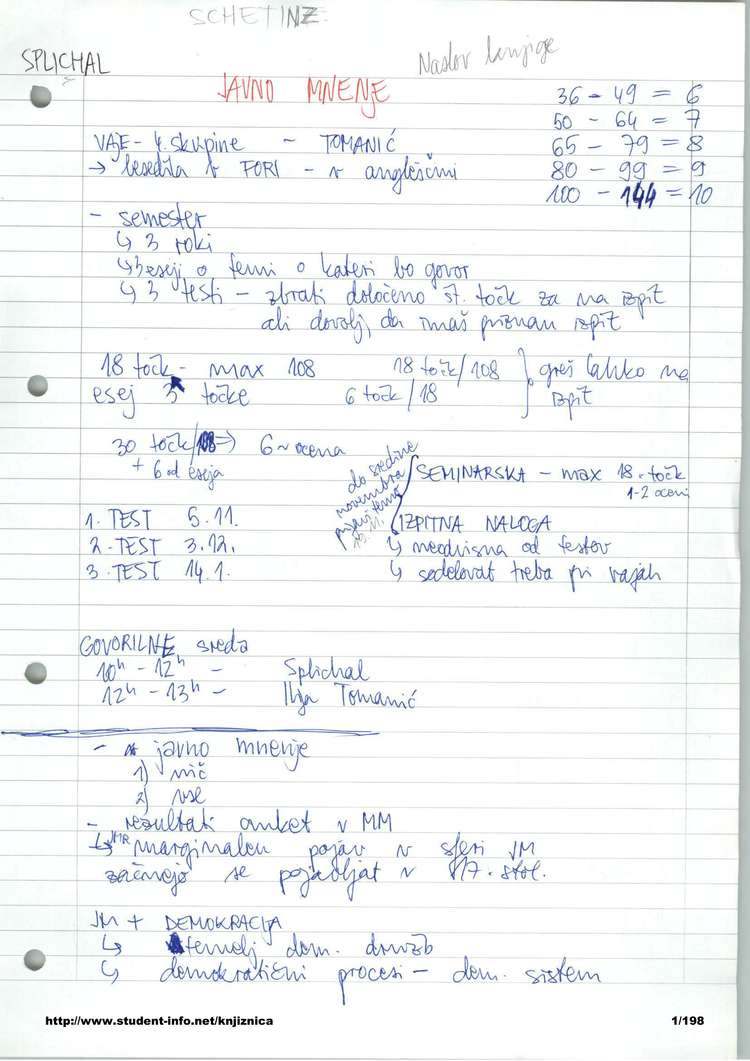 SCHETINZ
SPLICHAL
Naslov knjige
JAVNO MNENJE
36 - 49 = 6
50 - 64 = 7
65 - 79 = 8
80 - 99 = 9
100 - 144 = 10
VAJE - 4. skupine - TOMANIĆ
→ besedila v FORI - v angleščini
- semester
↳ 3 roki
↳ 3 eseji o temi o kateri bo govor
↳ 3 testi - zbrati določeno št. točk za na izpit
ali dovolj, da imaš priznan izpit
18 točk - max 108 18 točk/108 } greš lahko na
esej 3 točke 6 točk/18 izpit
30 točk/108 => 6 ~ ocena
+ 6 od eseja
do sredine
novembra
prijavit temo
15.11.
SEMINARSKA - max 18 točk
1-2 oceni
1. TEST 5.11.
2. TEST 3.12.
3. TEST 14.1.
IZPITNA NALOGA
↳ neodvisna od testov
↳ sodelovat treba pri vajah
GOVORILNE sreda
10h - 12h - Splichal
12h - 13h - Ilija Tomanić
- javno mnenje
1) nič
2) vse
- rezultati anket v MM
↳ JMR marginalen pojav v sferi JM
začnejo se pojavljat v 17. stol.
JM + DEMOKRACIJA
↳ temelj dem. družb
↳ demokratični procesi - dem. sistem
http://www.student-info.net/knjiznica
1/198